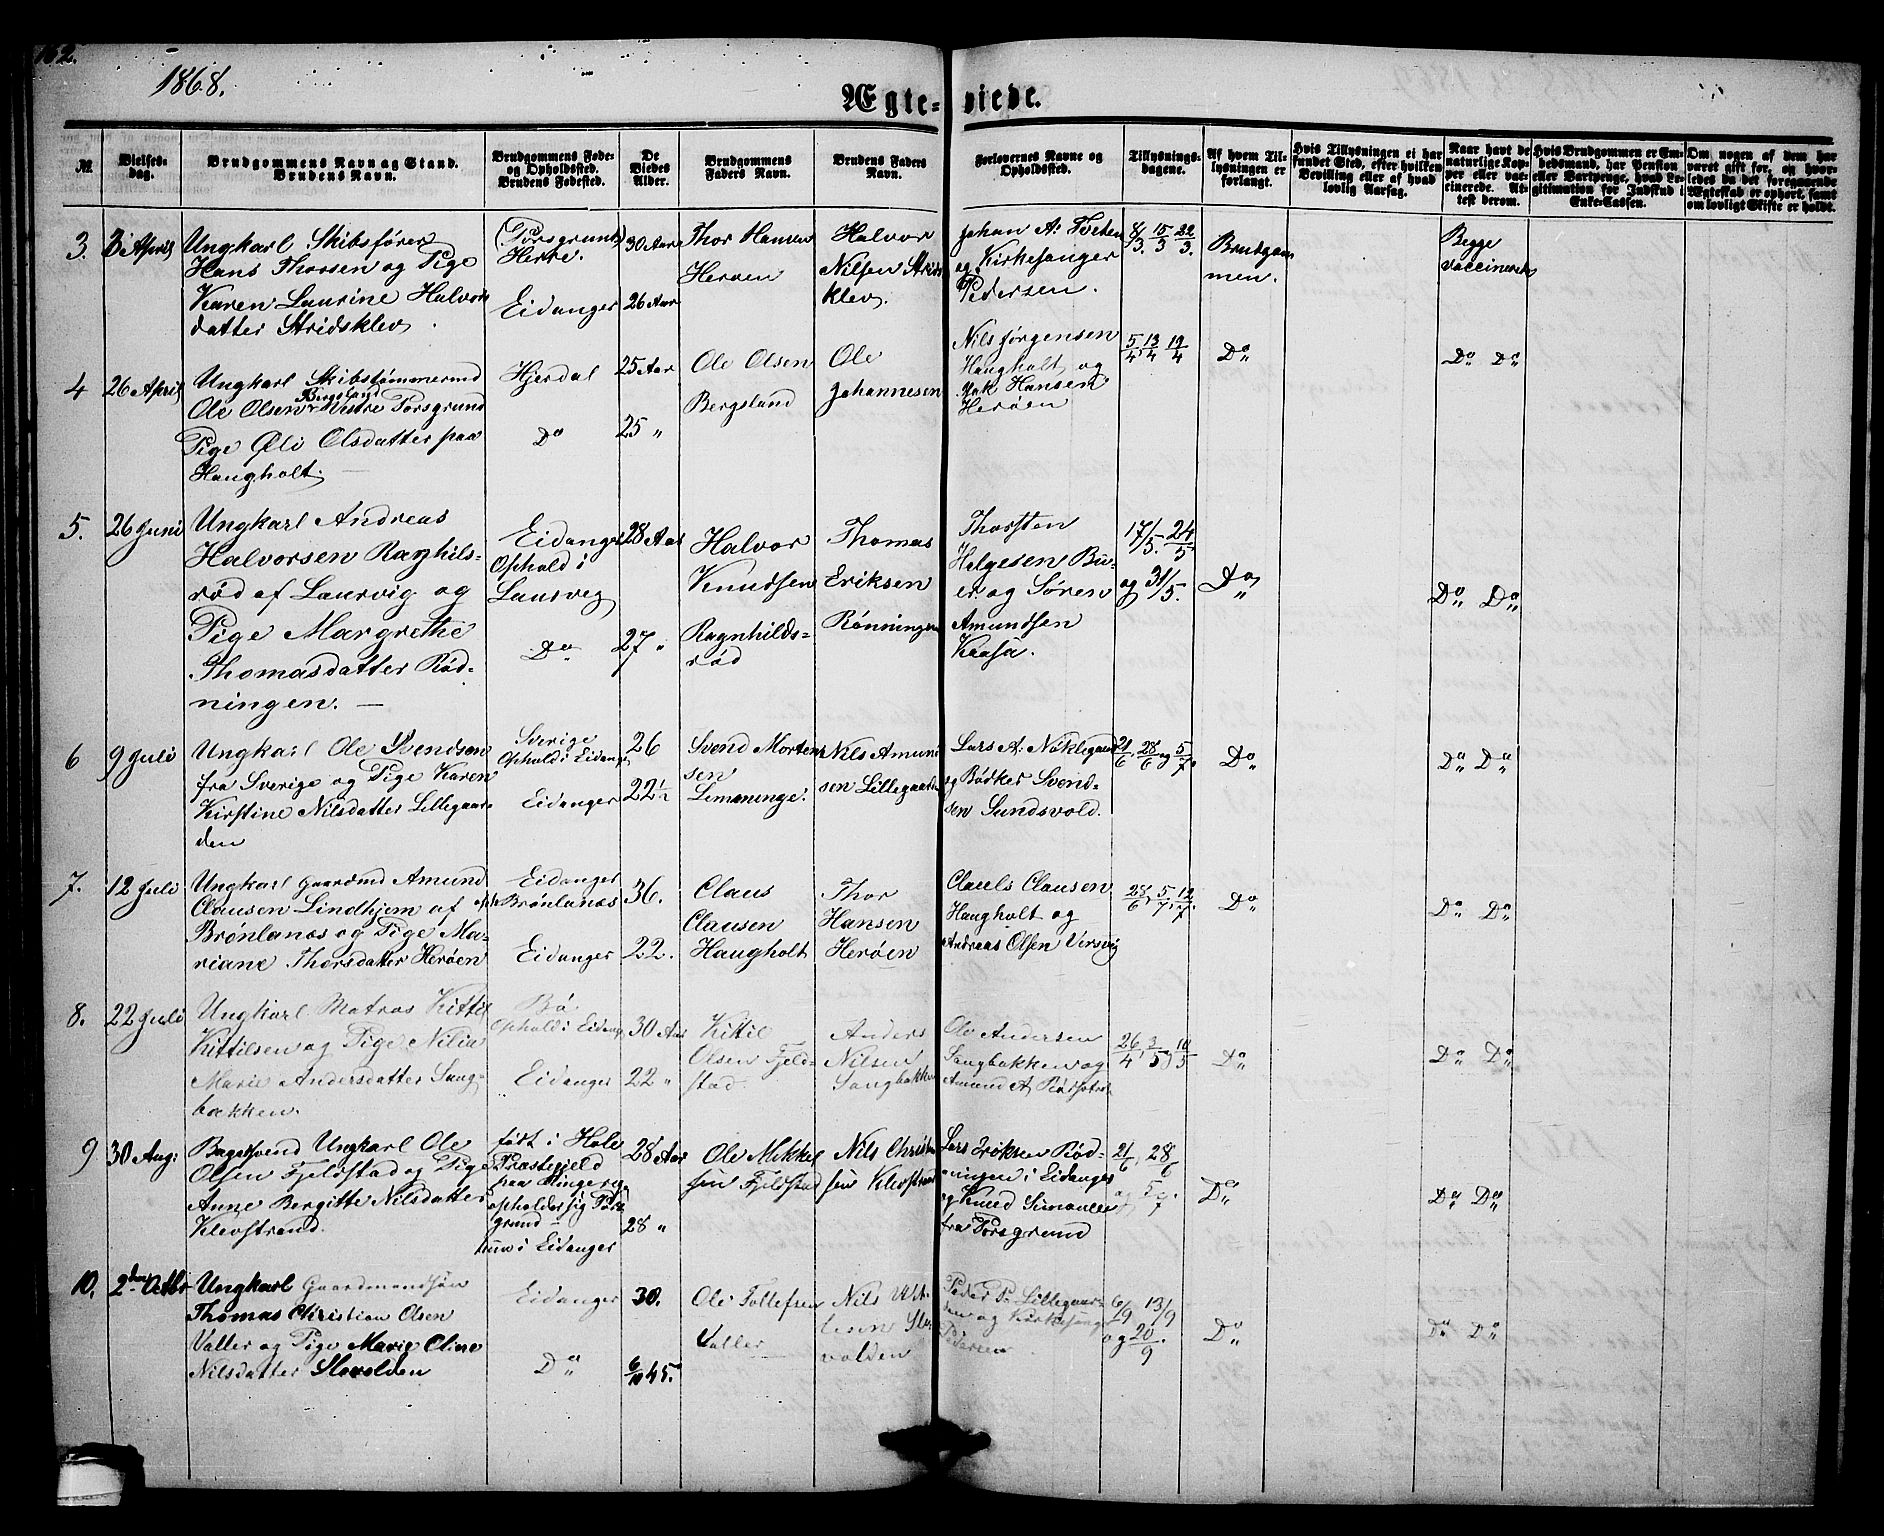 162.
1868.
Ægte-viede.
№.
Vielses-
dag.
Brudgommens Navn og Stand.
Brudens Navn.
Brudgommens Føde-
og Opholdssted.
Brudens Fødested.
De
Viedes
Alder.
Brudgommens
Faders Navn.
Brudens Faders
Navn.
Forlovernes Navne og
Opholdssted.
Tillysnings-
dagene.
Af hvem Til-
lysningen er
forlangt.
Hvis Tillysningen ei har
fundet Sted, efter hvilken
Bevilling eller af hvad
lovlig Aarsag.
Naar havt de
naturlige Kop-
per eller vac-
cinerede. At-
test derom.
Hvis Brudgommen er Em-
bedsmand, har Pension
eller Vartpenge, hvad Le-
gitimation for Indskud i
Enke-Cassen.
Om nogen af dem har
været gift før, og hvor-
ledes da det foregaaende
Ægteskab er ophørt, samt
om lovligt Skifte er holdt.
3. 3 April
Ungkarl Skibsfører
Hans Thorsen og Pige
Karen Laurine Halvors
datter Stridsklev.
Porsgrund
Herre.
Eidanger
30 Aar
26 Aar
Thor Hansen
Herøen
Halvor
Nilsen Strids
klev.
Johan A. Tveten
og Kirkesanger
Pedersen.
8/3. 15/3 22/3.
Brudgom
men.
Begge
vaccinerede
4 26 April
Ungkarl Skibstømmermd
Bergsland
Ole Olsen Vestre Porsgrund
Pige Øli Olsdatter paa
Haugholt.
Hjerdal
Do
25 Aar
25 "
Ole Olsen
Bergsland
Ole
Johannesen
Nils Jørgensen
Haugholt og
Isak Hansen
Herøen
5/4 13/4 19/4
Do
Do Do
5. 26 Juni
Ungkarl Andreas
Halvorsen Raghils-
rød af Laurvig og
Pige Margrethe
Thomasdatter Rød-
ningen. —
Eidanger
Ophold i
Laurvig
Do
28 Aar
27 "
Halvor
Knudsen
Ragnhilds-
rød
Thomas
Eriksen
Rønningen
Thorsten
Helgesen Bu-
er og Søren
Amundsen
Kaasa.
17/5. 24/5
og 31/5.
Do
Do Do
6 9 Juli
Ungkarl Ole Svendsen
fra Sverige og Pige Karen
Kirstine Nilsdatter Lillegaar-
den
Sverige
Ophold i Eidanger
Eidanger
26
22½
Svend Morten
sen
Limaninge.
Nils Amund
sen Lillegaarden
Lars A. Nøklegaard
og Bødker Svend-
sen Sundsvold.
21/6, 28/6 og 5/7.
Do
Do Do
7. 12 Juli
Ungkarl Gaardmd Amund
Clausen Lindhjem af
Brønlanæs og Pige Ma-
riane Thorsdatter Herøen
Eidanger
oph Brønlanæs
Eidanger
36.
22.
Claus
Clausen
Haugholt
Thor
Hansen
Herøen
Claus Clausen
Haugholt og
Andreas Olsen Versvig
28/6, 5/7, 12/7.
Do
Do Do
8. 22 Juli
Ungkarl Matros Kittil
Kittilsen og Pige Nilia
Marie Andersdatter Sang-
bakken.
Bø
Ophold i Eidanger
Eidanger
30 Aar
22 "
Kittil
Olsen Fjeld-
stad.
Anders
Nilsen
Sangbakken
Ole Andersen
Sangbakken og
Amund A.
26/4, 3/5 og 10/5
Do
Do Do
9 30 Aug:
Bagersvend Ungkarl Ole
Olsen Fjeldstad og Pige
Anne Bergitte Nilsdatter
Klevstrand.
født i Hole
Præstegjeld
paa Ringerige
opholder sig Pors
grund —
hun i Eidanger
28 Aar
28 "
Ole Mikkel
sen Fjeldstad
Nils Christen
sen Klevstrand
Lars Eriksen Rød-
ningen i Eidanger
og Knud
fra Porsgrund
21/6, 28/6
og 5/7.
Do
Do Do
10. 2den Octbr
Ungkarl Gaardmandsøn
Thomas Christian Olsen
Valler og Pige Marie Oline
Nilsdatter Slevolden
Eidanger
Do
30.
6/10 45.
Ole Tollefsen
Valler
Nils
Sle-
volden
Peder P. Lillegaar-
den og Kirkesanger
Pedersen
6/9 13/9
og 20/9.
Do
Do Do